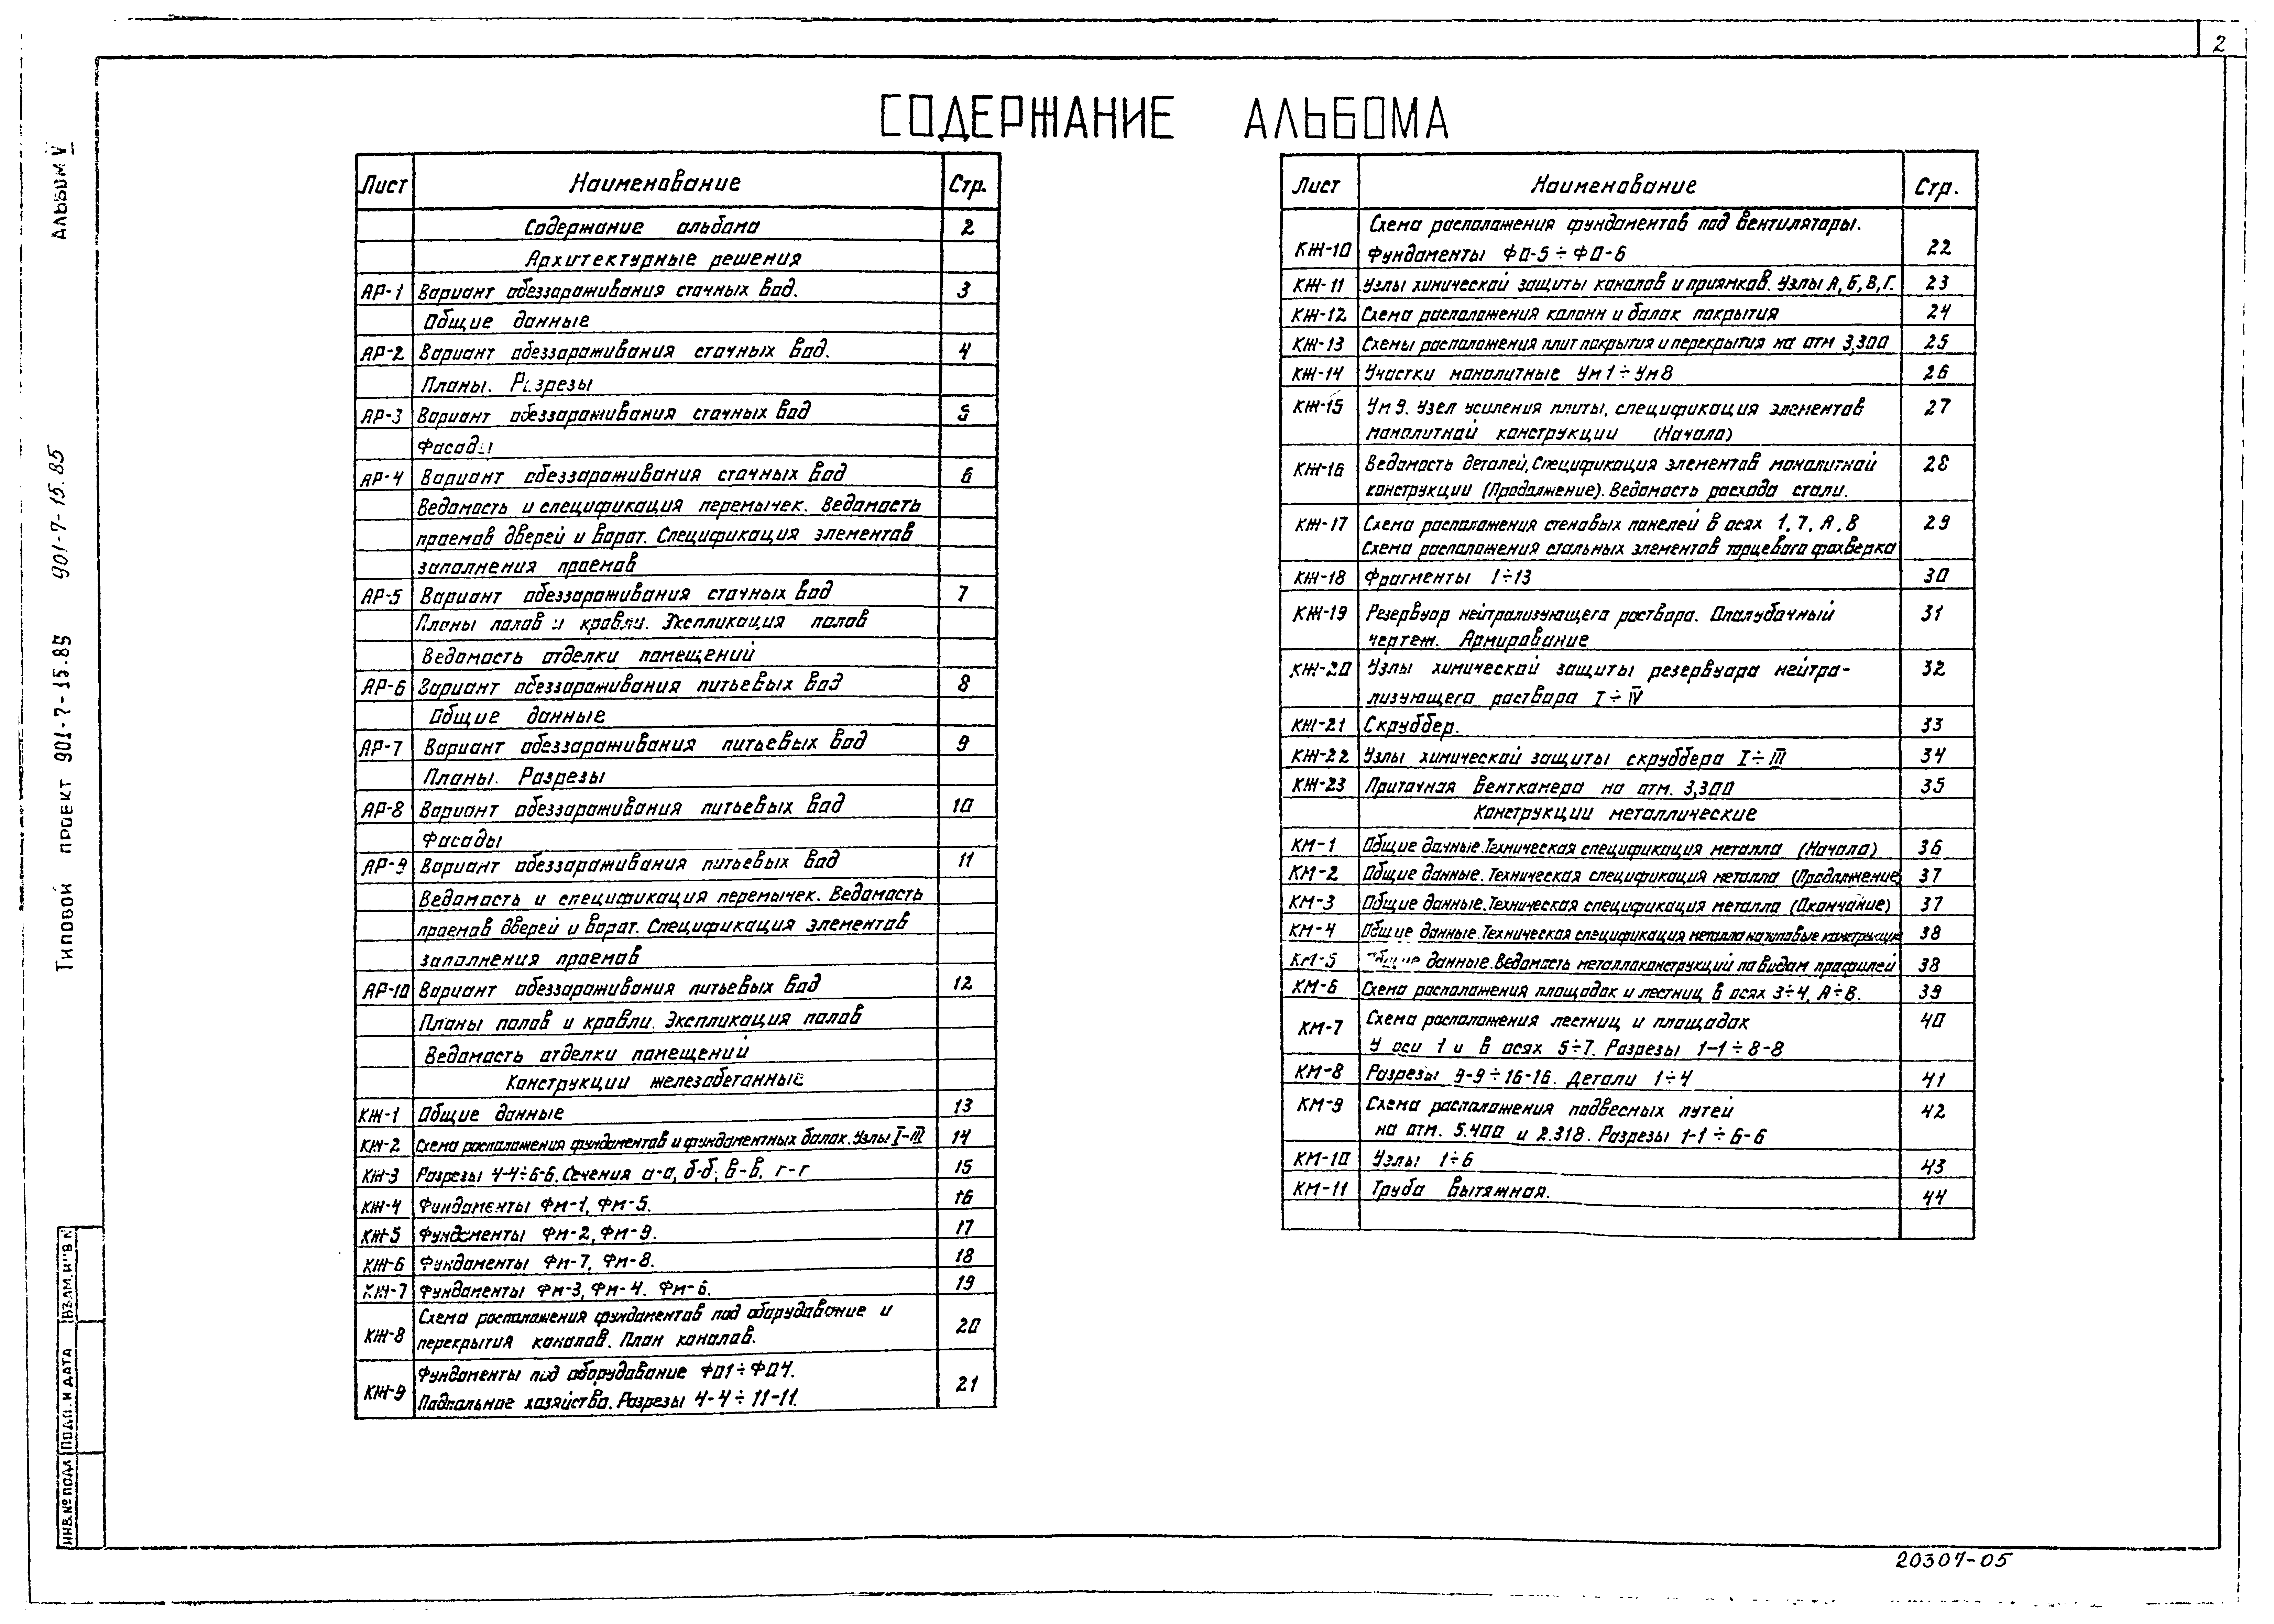 2
СОДЕРЖАНИЕ АЛЬБОМА
Альбом V
901-7-15.85
Типовой проект 901-7-15.85
Лист Наименование Стр.
Содержание альбома 2
Архитектурные решения
АР-1 Вариант обеззараживания сточных вод. 3
Общие данные
АР-2 Вариант обеззараживания сточных вод. 4
Планы. Разрезы
АР-3 Вариант обеззараживания сточных вод 5
Фасады
АР-4 Вариант обеззараживания сточных вод 6
Ведомость и спецификация перемычек. Ведомость
проемов дверей и ворот. Спецификация элементов
заполнения проемов
АР-5 Вариант обеззараживания сточных вод 7
Планы полов и кровли. Экспликация полов
Ведомость отделки помещений
АР-6 Вариант обеззараживания питьевых вод 8
Общие данные
АР-7 Вариант обеззараживания питьевых вод 9
Планы. Разрезы
АР-8 Вариант обеззараживания питьевых вод 10
Фасады
АР-9 Вариант обеззараживания питьевых вод 11
Ведомость и спецификация перемычек. Ведомость
проемов дверей и ворот. Спецификация элементов
заполнения проемов
АР-10 Вариант обеззараживания питьевых вод 12
Планы полов и кровли. Экспликация полов
Ведомость отделки помещений
Конструкции железобетонные
КЖ-1 Общие данные 13
КЖ-2 Схема расположения фундаментов и фундаментных балок. Узлы I-III 14
КЖ-3 Разрезы 4-4÷6-6. Сечения а-а, б-б, в-в, г-г 15
КЖ-4 Фундаменты Фм-1, Фм-5. 16
КЖ-5 Фундаменты Фм-2, Фм-9. 17
КЖ-6 Фундаменты Фм-7, Фм-8. 18
КЖ-7 Фундаменты Фм-3, Фм-4. Фм-6. 19
КЖ-8 Схема расположения фундаментов под оборудование и 20
перекрытия каналов. План каналов.
КЖ-9 Фундаменты под оборудование ФО1÷ФО4. 21
Подпольное хозяйство. Разрезы 4-4÷11-11.
Лист Наименование Стр.
Схема расположения фундаментов под вентиляторы.
КЖ-10 Фундаменты ФО-5÷ФО-6 22
КЖ-11 Узлы химической защиты каналов и приямков. Узлы А, Б, В, Г. 23
КЖ-12 Схема расположения колонн и балок покрытия 24
КЖ-13 Схемы расположения плит покрытия и перекрытия на отм 3,300 25
КЖ-14 Участки монолитные Ум1÷Ум8 26
КЖ-15 Ум9. Узел усиления плиты, спецификация элементов 27
монолитной конструкции (Начало)
КЖ-16 Ведомость деталей, Спецификация элементов монолитной 28
конструкции (Продолжение). Ведомость расхода стали.
КЖ-17 Схема расположения стеновых панелей в осях 1, 7, А, В 29
Схема расположения стальных элементов торцевого фахверка
КЖ-18 Фрагменты 1÷13 30
КЖ-19 Резервуар нейтрализующего раствора. Опалубочный 31
чертеж. Армирование
КЖ-20 Узлы химической защиты резервуара нейтра- 32
лизующего раствора I÷IV
КЖ-21 Скруббер. 33
КЖ-22 Узлы химической защиты скруббера I÷III 34
КЖ-23 Приточная венткамера на отм. 3,300 35
Конструкции металлические
КМ-1 Общие данные. Техническая спецификация металла (Начало) 36
КМ-2 Общие данные. Техническая спецификация металла (Продолжение) 37
КМ-3 Общие данные. Техническая спецификация металла (Окончание) 37
КМ-4 Общие данные. Техническая спецификация металла на типовые конструкции 38
КМ-5 Общие данные. Ведомость металлоконструкций по видам профилей 38
КМ-6 Схема расположения площадок и лестниц в осях 3÷4, А÷В. 39
КМ-7 Схема расположения лестниц и площадок 40
У оси 1 и в осях 5÷7. Разрезы 1-1÷8-8
КМ-8 Разрезы 9-9÷16-16. Детали 1÷4 41
КМ-9 Схема расположения подвесных путей 42
на отм. 5.400 и 2.318. Разрезы 1-1÷6-6
КМ-10 Узлы 1÷6 43
КМ-11 Труба вытяжная. 44
ИНВ.№ ПОДЛ ПОДП. И ДАТА ВЗАМ. ИНВ. №
20307-05